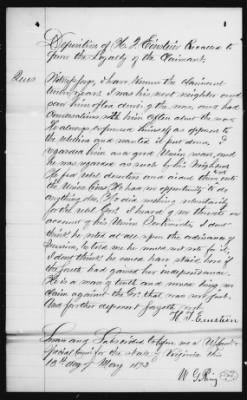 Deposition of H. T. Einstein Recalled to
prove the Loyalty of the Claimant.
Ques
I have known the claimant
twelve years I was his near neighbor and
saw him often during the war and had
Conversations with him often about the war.
He always expressed himself as opposed to
the rebellion and wanted it put down. I
regarded him as a good Union man, and
he was regarded as such by his neighbors
He fed rebel deserters and aided them into
the Union lines. He had no opportunity to do
anything else. He did nothing voluntarily
for the rebel Govt. I heard of no threats on
account of his Union Sentiments. I dont
think he voted at all upon the ordinance of
Secession, he told me he would not vote for it
I dont think he could have staid here if
the South had gained her independence.
He is a man of truth and would bring no
claim against the Govt. that was not just.
And further deponent sayeth not
H. T. Einstein
Sworn and Subscribed before me a
Special Comr for the State of Virginia this
13th day of May 1873